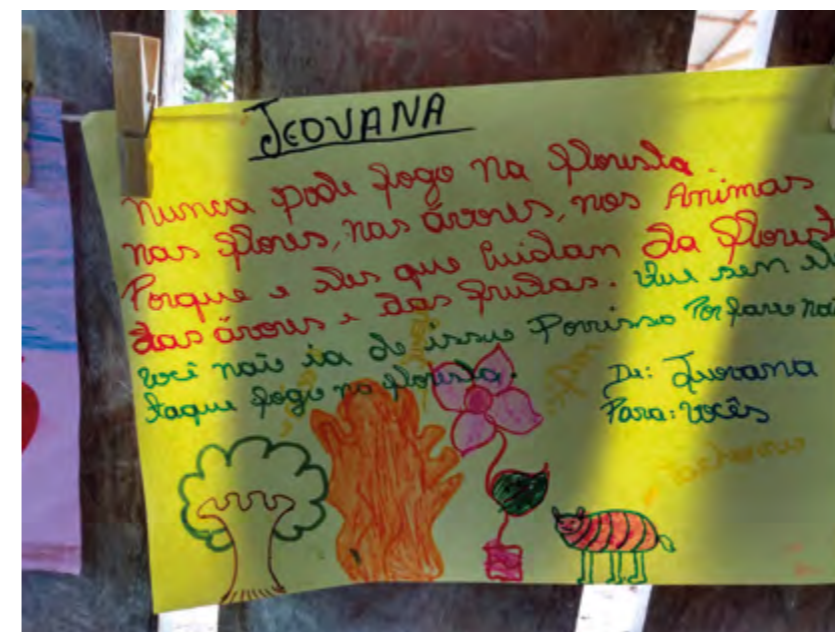 JEOVANA
Nunca pode fogo na floresta.
nas flores, nas árvores, nos Animas
Porque e eles que Cuidam da florest
das árvores e das frutas. que sem
você não ia de issue Porrisso Por favo
taque fogo na floresta.
De: Jeovana
Para: vocês